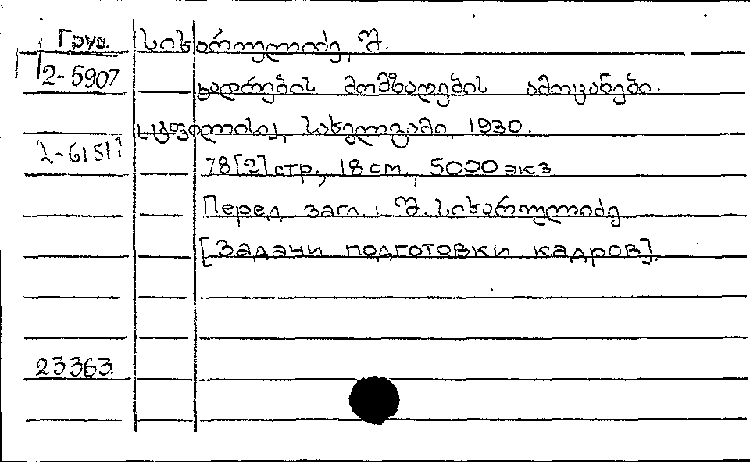 Груз. სიხარულიძე, შ.
2-5907
კადრების მომზადების ამოცანები.
ტფილისი, სახელგამი, 1930.
2-6151
78[2] стр., 18 см., 5000 экз
Перед загл.: შ. სიხარულიძე
[Задачи подготовки кадров].
23363